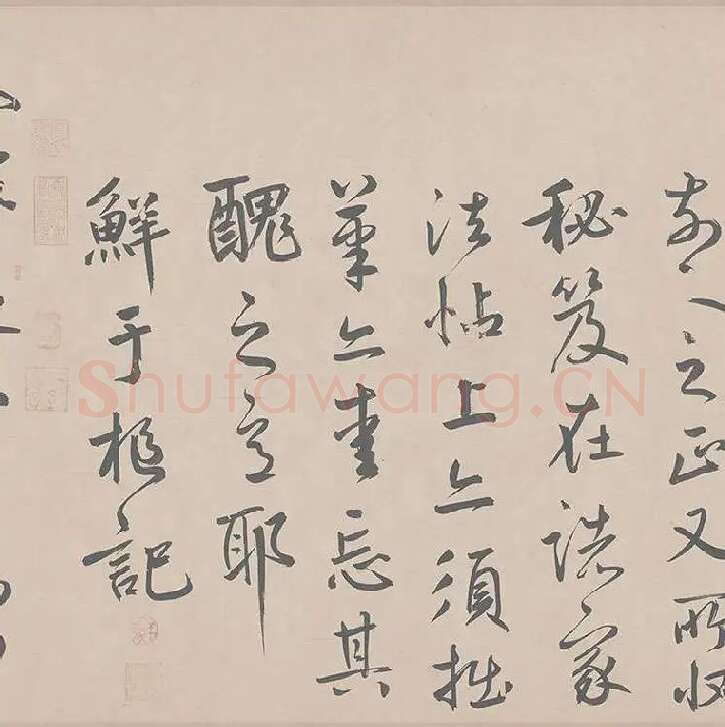 人之正又所收
秘笈在諸家
法帖上亦須拙
筆亦忘其
醜之耶
鮮于樞記
Shufawang.CN